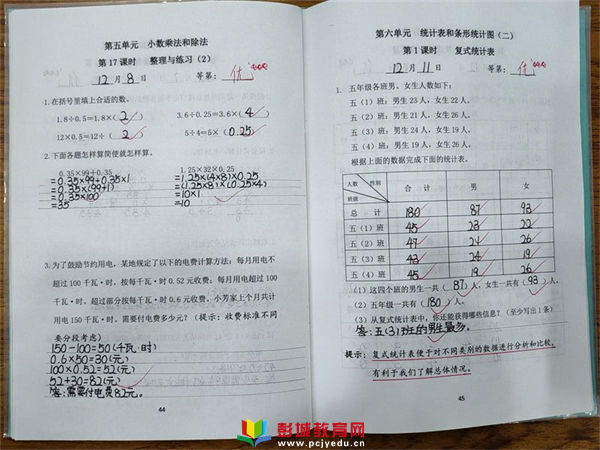 第五单元 小数乘法和除法
第17课时 整理与练习（2）
12月8日 等第：优
1.在括号里填上合适的数。
1.8÷0.5=1.8×（2） 3.6÷0.25=3.6×（4）
12×0.5=12÷（2） 5÷4=5×（0.25）
2.下面各题怎样算简便就怎样算。
0.35×99+0.35 1.25×32×0.25
=0.35×99+0.35×1 =1.25×(4×8)×0.25
=0.35×(99+1) =(1.25×8)×(0.25×4)
=0.35×100 =10×1
=35 =10
3.为了鼓励节约用电，某地规定了以下的电费计算方法：每月用电不
超过100千瓦·时，按每千瓦·时0.52元收费；每月用电超过100
千瓦·时，超过部分按每千瓦·时0.6元收费。小芳家上个月共计
用电150千瓦·时。需要付电费多少元？（提示：收费标准不同
要分段考虑）
150-100=50(千瓦·时)
0.6×50=30(元)
100×0.52=52(元)
52+30=82(元)
答:需要付电费82元。
44
第六单元 统计表和条形统计图（二）
第1课时 复式统计表
12月11日 等第：优
1. 五年级各班男、女生人数如下：
五（1）班：男生23人，女生22人。
五（2）班：男生21人，女生26人。
五（3）班：男生24人，女生19人。
五（4）班：男生19人，女生26人。
根据上面的数据完成下面的统计表。
人数 性别 班级 合计 男 女
总计 180 87 93
五（1）班 45 23 22
五（2）班 47 21 26
五（3）班 43 24 19
五（4）班 45 19 26
（1）这四个班的男生一共（87）人，女生一共有（93）人。
（2）五年级一共有（180）人。
（3）从复式统计表中，你还能获得哪些信息？（至少写出1条）
答:五(3)班的男生最多。
提示：复式统计表便于对不同类别的数据进行分析和比较，
有利于我们了解总体情况。
45
彭城教育网
www.pcjyedu.cn